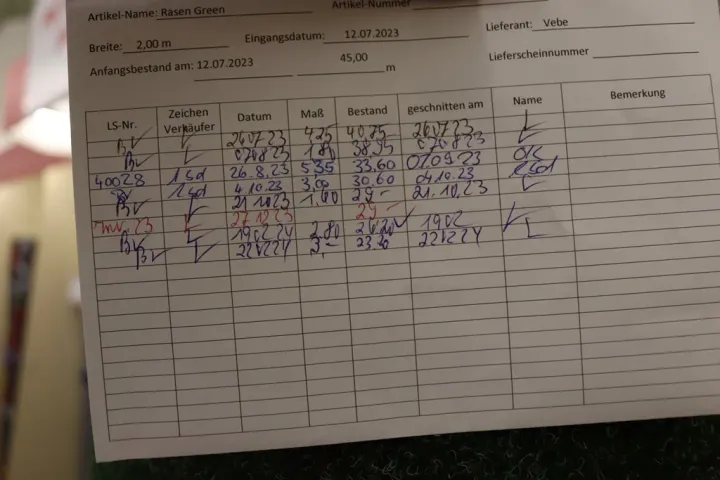 Artikel-Name: Rasen Green Artikel-Nummer
Breite: 2,00 m Eingangsdatum: 12.07.2023 Lieferant: Vebe
Anfangsbestand am: 12.07.2023 45,00 m Lieferscheinnummer
LS-Nr. Zeichen Verkäufer Datum Maß Bestand geschnitten am Name Bemerkung
BV 260723 4,25 40,75 260723
BV 070823 1,80 38,95 070823
40028 1sd 26.8.23 5,35 33,60 07.09.23
4.10.23 3,00 30.60 04.10.23
BV 21.10.23 1,60 29,- 21.10.23
Inv. 23 27.12.23 29,-
BV 190224 2,80 26,20 1902
BV 220224 3,- 23.20 220224